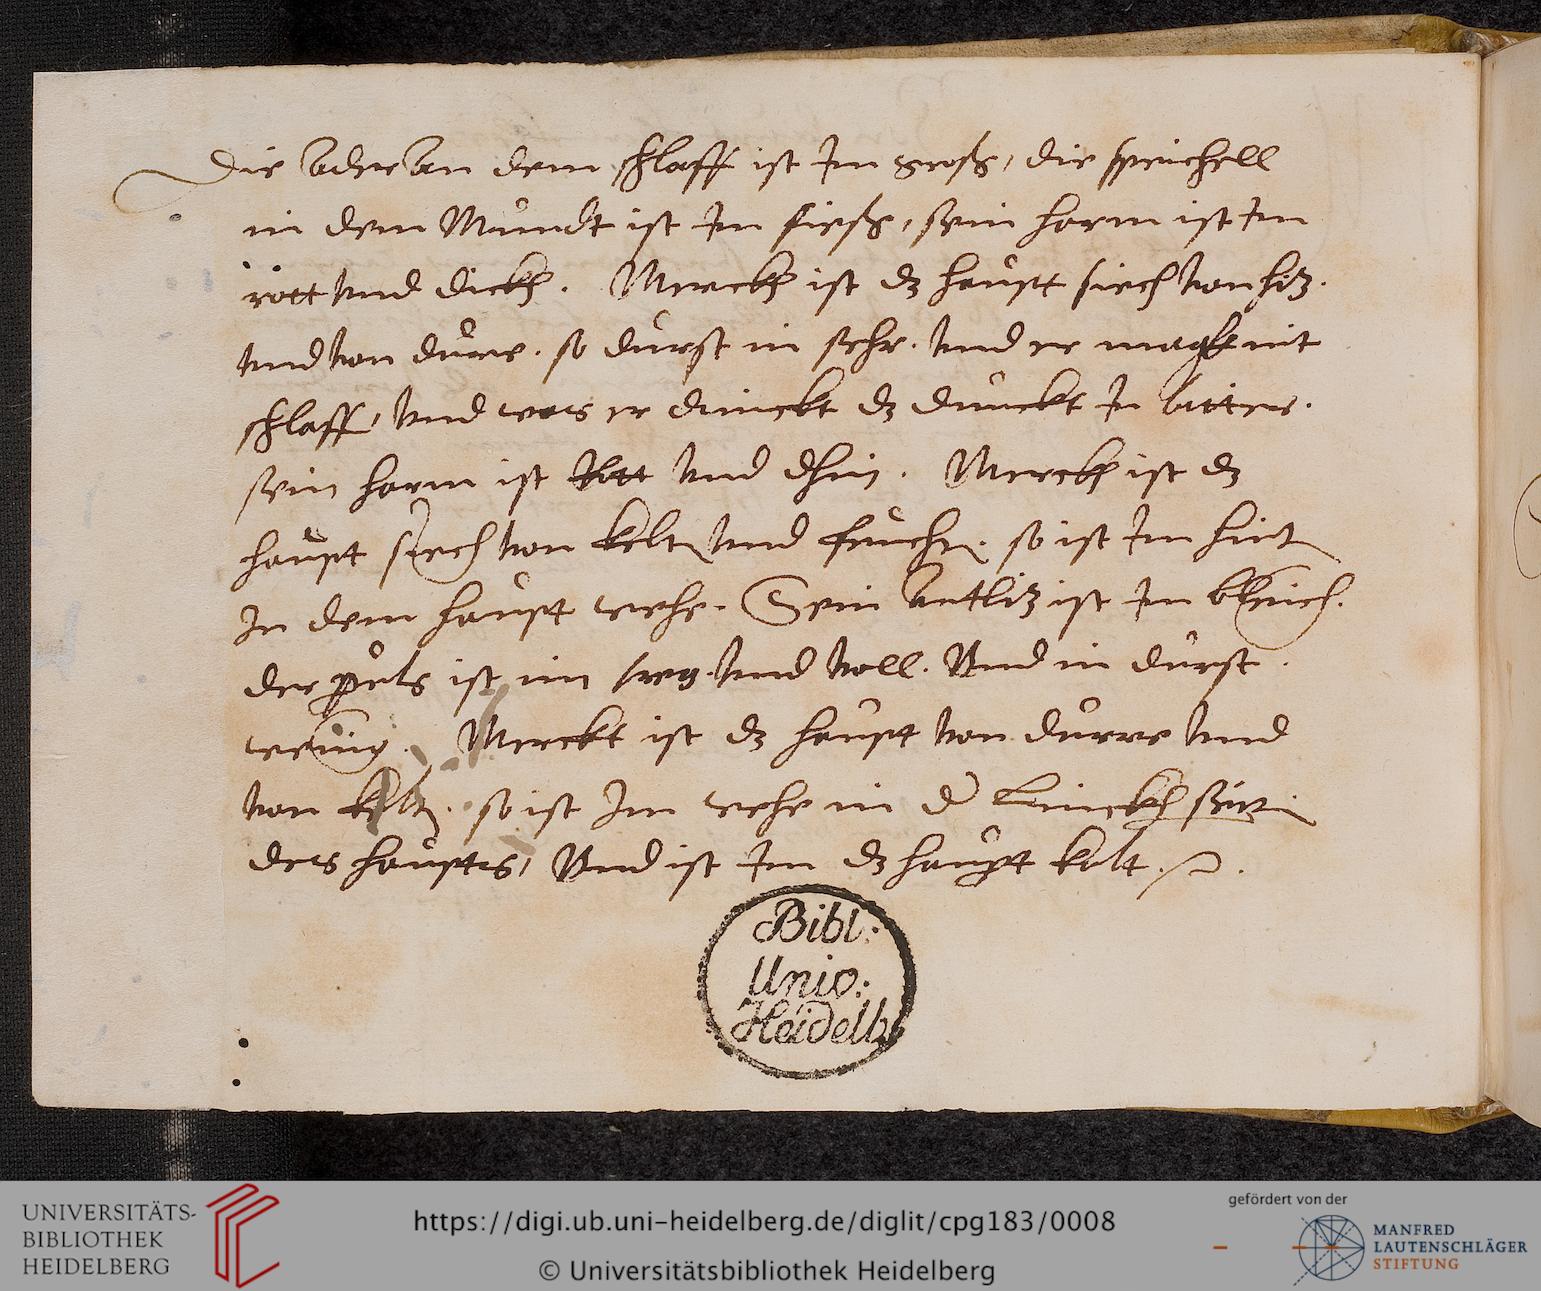 Die ader an dem schlaff ist Im groß, die speichell
in dem Mundt ist Im sieß, sein harm ist Im
rott vnd dickh. Merckh ist dz haupt siech von hitz.
vnd von durre. so durst in sehr. vnd er magk nit
schlaff, vnd was er drinckt dz dunckt In bitter.
sein harm ist Rott vnd dhin. Merckh ist dz
haupt siech von kelt vnd feucht. so ist Im hind
In dem haupt wehe. Sein antlitz ist Im bleich.
der puls ist im treg. vnd voll. Vnd in durst
wenig. Merckt ist dz haupt von durre vnd
von kelt. so ist Im wehe in d Linckh seitt
des haupts, Vnd ist Im dz haupt kalt.
Bibl:
Univ:
Heidelb
UNIVERSITÄTS-
BIBLIOTHEK
HEIDELBERG
https://digi.ub.uni-heidelberg.de/diglit/cpg183/0008
© Universitätsbibliothek Heidelberg
gefördert von der
MANFRED
LAUTENSCHLÄGER
STIFTUNG